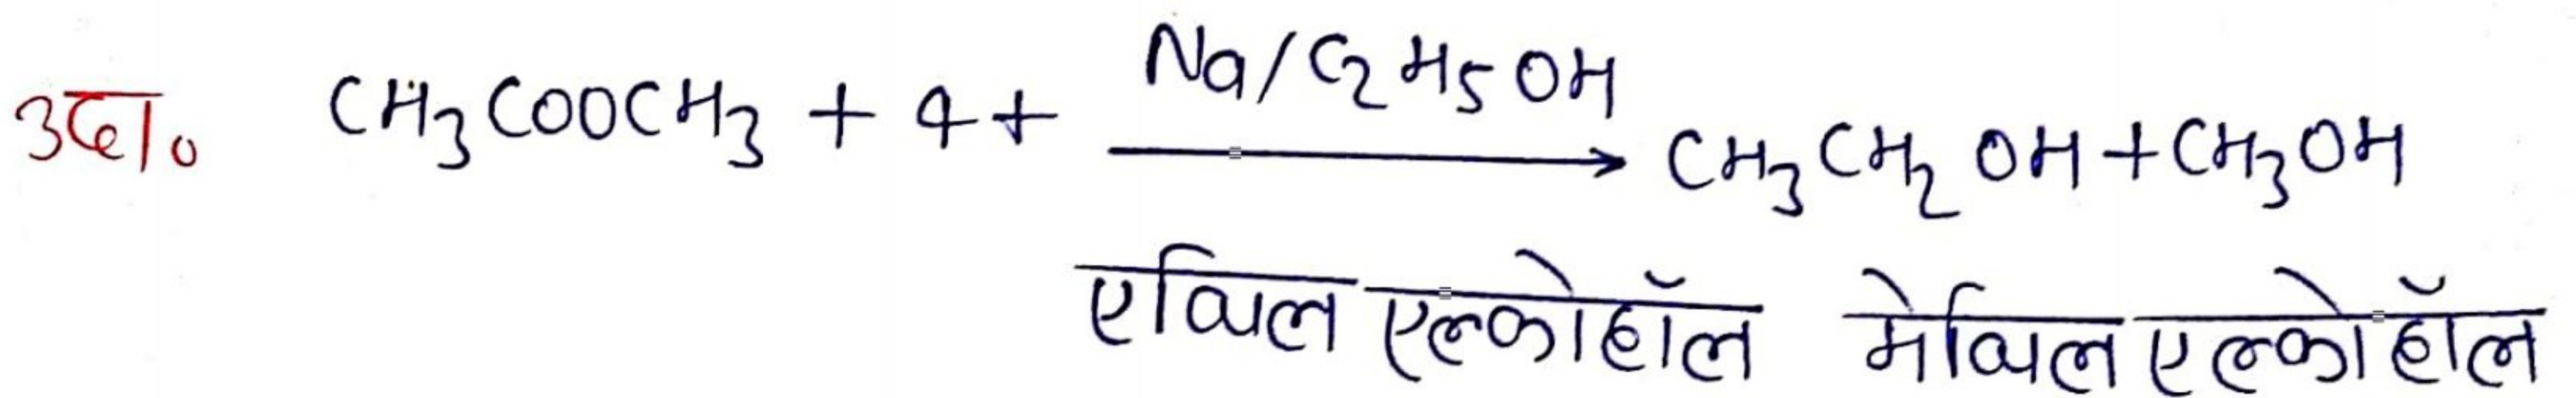 उदा० CH₃COOCH₃ + 4+ Na/C₂H₅OH → CH₃CH₂OH + CH₃OH
एथिल एल्कोहॉल मेथिल एल्कोहॉल